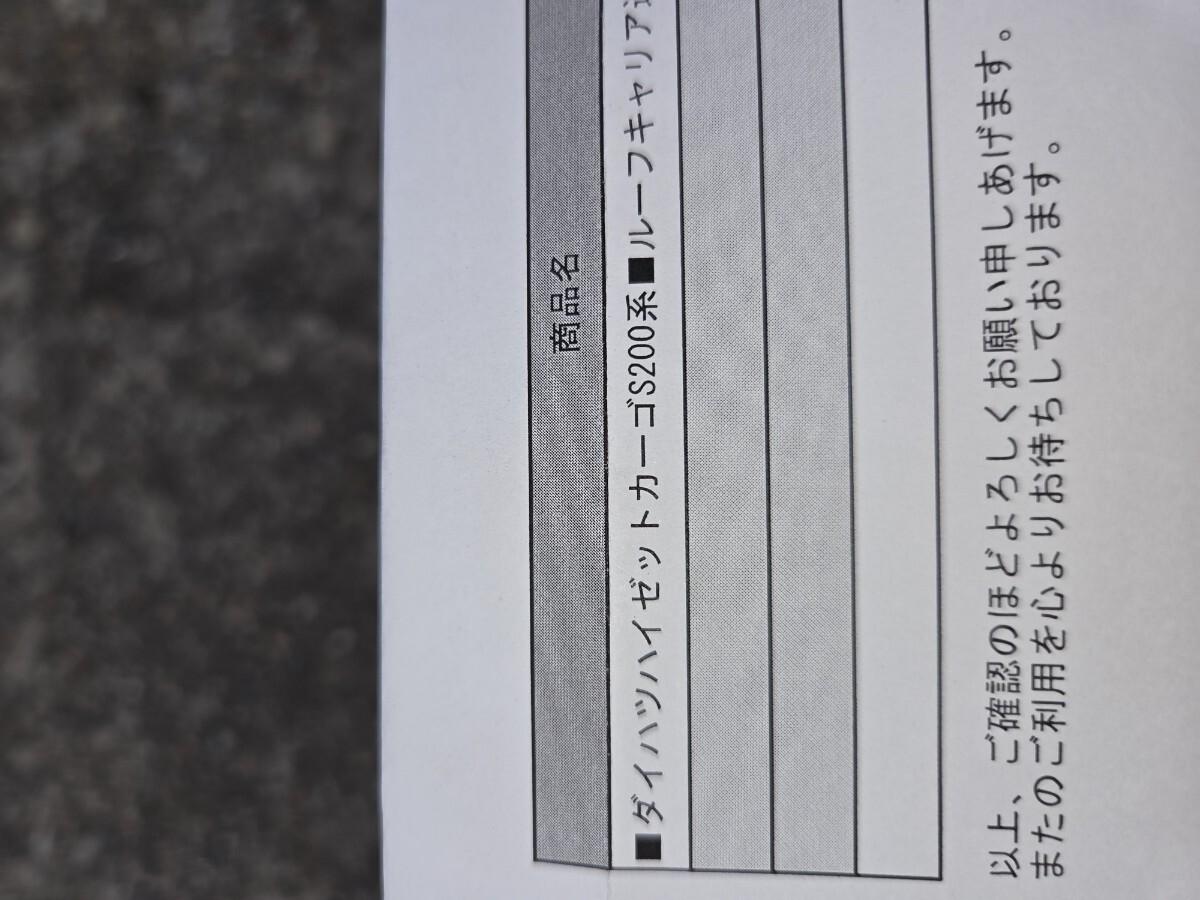 商品名
■ダイハツハイゼットカーゴS200系■ルーフキャリア
以上、ご確認のほどよろしくお願い申しあげます。
またのご利用を心よりお待ちしております。